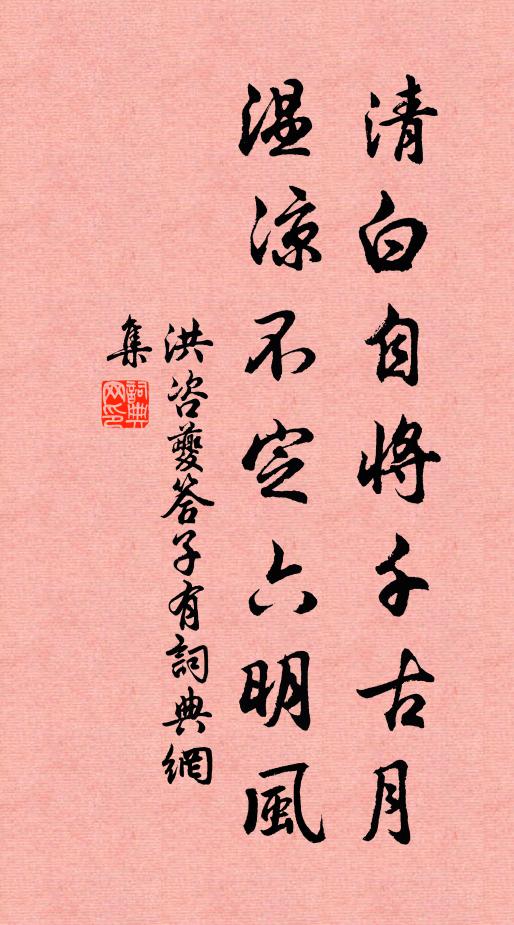 清白自将千古月
温凉不定六明風
洪咨夔答子有詞典網
集
詞典网印